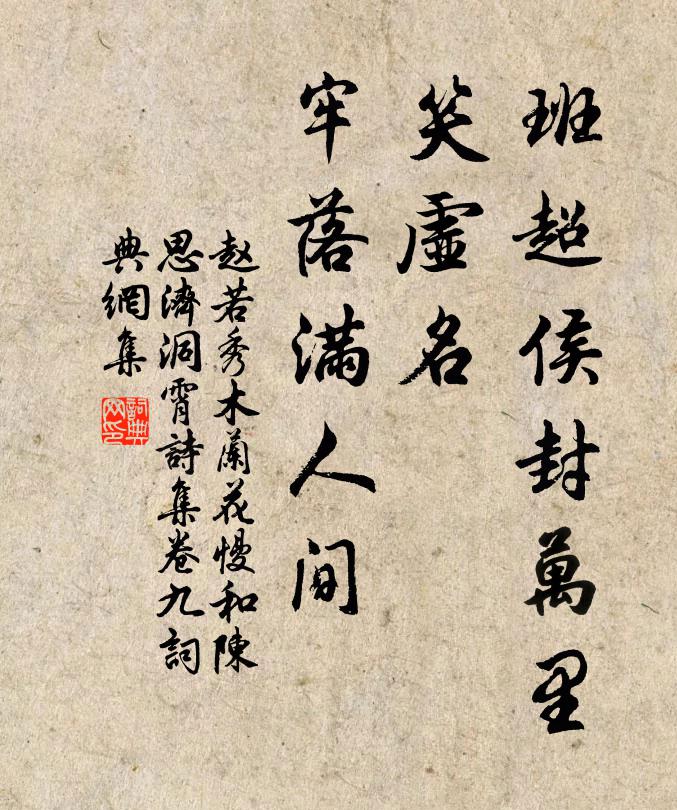 班超侯封萬里
笑虛名
牢落滿人间
赵若秀木蘭花慢和陳
思濟洞霄詩集卷九詞
典網集
詞典
网印